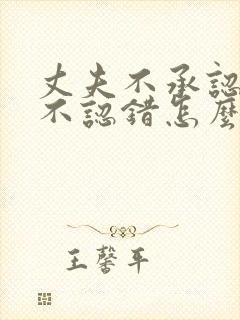 丈夫不承認
不認錯怎麼
王馨平